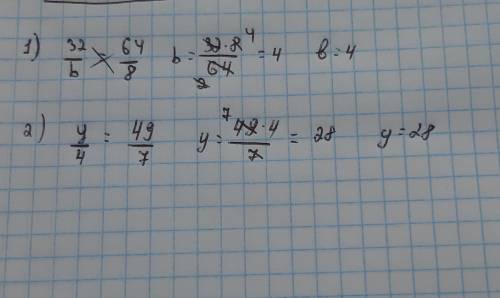 1) 32/b = 64/8 b = 32·8/64 4 2 = 4 b = 4
2) y/4 = 49/7 y = 7 49·4/7 = 28 y = 28